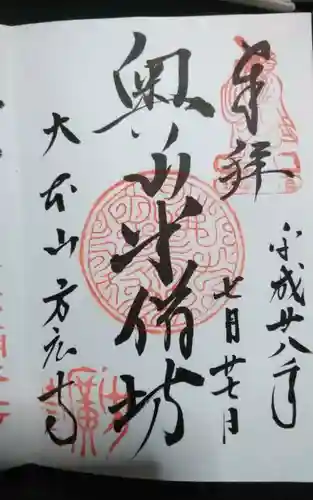 奉拝
平成廿八年
七月廿七日
奥山半僧坊
大本山方広寺